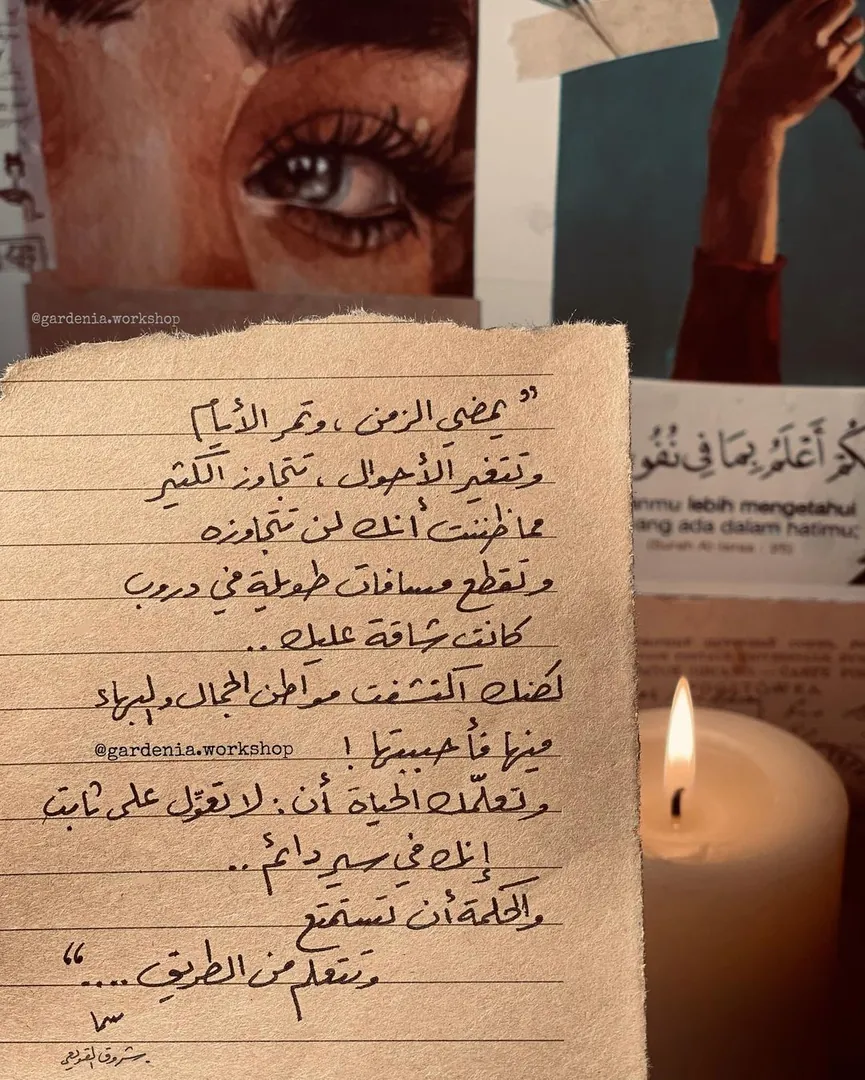 @gardenia.workshop
" يمضي الزمن ، وتمر الأيام
وتتغير الأحوال ، تتجاوز الكثير
مما ظننت أنك لن تتجاوزه
وتقطع مسافات طويلة في دروب
كانت شاقة عليك ..
لكنك اكتشفت مواطن الجمال والبهاء
فيها فأحببتها !
@gardenia.workshop
وتعلّمك الحياة أن : لا تعوّل على ثابت
إنك في سير دائم ..
والحكمة أن تستمتع
وتتعلم من الطريق .... "
سما
شروق القويعي
كُمْ أَعْلَمُ بِمَا فِي نُفُو
nmu lebih mengetahui
ang ada dalam hatimu;